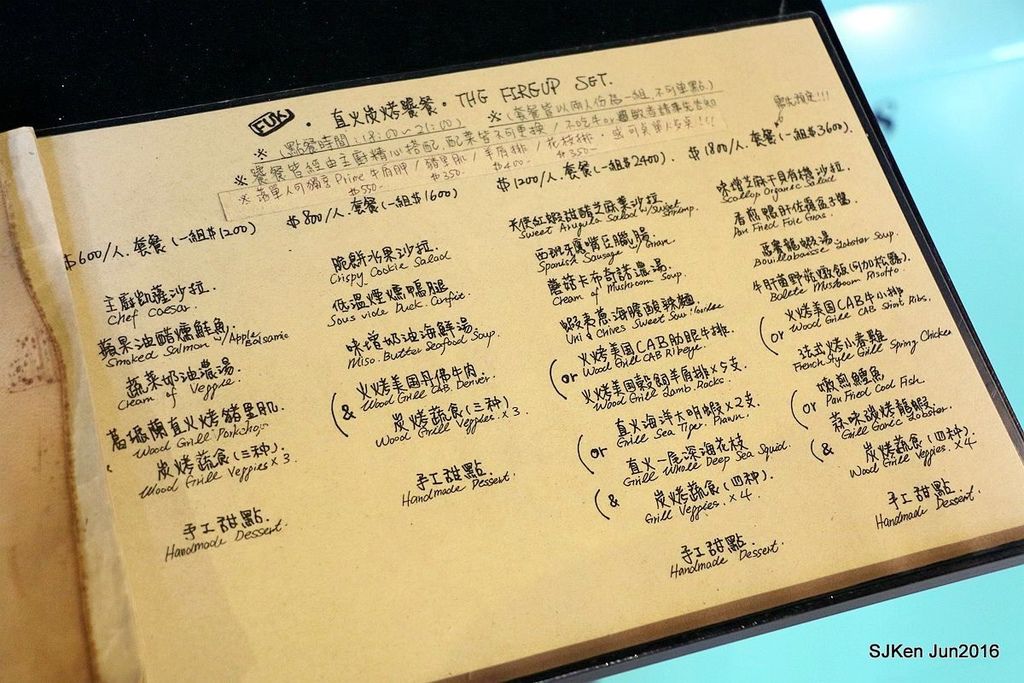 FUK • 直火炭烤饗餐 • THE FIREUP SET.
※ (點餐時間:18:00~21:00) ※ (套餐皆以兩人份為一組,不可單點)
※ 饗餐皆經由主廚精心搭配,配菜皆不可更換 / 不吃牛or過敏者請事先告知
※ 落單人可獨享 Prime 牛肩胛 / 豬里肌 / 羊肩排 / 花枝排.
$550- $350. $400- $350-
$600/人.套餐(一組$1200)
主廚凱薩沙拉.
Chef Caesar
蘋果油醋燻鮭魚
Smoked Salmon w/Apple Balsamic
蔬菜奶油濃湯
Cream of Veggie
直火烤豬里肌.
Wood Grill Porkchop
炭烤蔬食(三种).
Wood Grill Veggies x 3
手工甜點.
Handmade Dessert.
$800/人.套餐(一組$1600)
脆餅水果沙拉
Crispy Cookie Salad
低溫煙燻鴨腿
Sous vide Duck Confit
味增奶油海鮮湯
Miso.Butter Seafood Soup
火烤美国丹佛牛肉.
Wood Grill CAB Denver.
(& 炭烤蔬食(三种)
Wood Grill Veggies x 3.
手工甜點.
Handmade Dessert.
$1200/人.套餐(一組$2400).
天使紅蝦甜醋芝麻葉沙拉.
Sweet Arugula Salad w/Sweet Shrimp.
西班牙鷹嘴豆臘腸
Spanish Sausage w/Gram
蘑菇卡布奇諾濃湯.
Cream of Mushroom Soup.
蝦夷蔥海膽酸辣麵
Uni & Chives Sweet Sour Noodle
火烤美国CAB肋眼牛排.
Wood Grill CAB Ribeye
(or 火烤美国穀飼羊肩排x5支
Wood Grill Lamb Racks.
直火海洋大明蝦x2支
Grill Sea Tiger Prawn.
(or 直火一尾深海花枝
Grill Whole Deep Sea Squid.
(& 炭烤蔬食(四种)
Grill Veggies x 4.
手工甜點.
Handmade Dessert.
$1800/人.套餐(一組$3600).
味增芝麻干貝有機沙拉.
Scallop Organic Salad
香煎鴨肝佐
Pan Fried Foie Gras
龍蝦湯
Bouillabaisse Lobster Soup.
牛肝菌野菇燉飯(可加松露).
Bolete Mushroom Risotto
火烤美国CAB牛小排
Wood Grill CAB Short Ribs.
(or 法式烤小春雞
French Style Grill Spring Chicken
嫩煎鱈魚
Pan Fried Cod Fish.
(or 蒜味碳烤龍蝦
Grill Garlic Lobster.
(& 炭烤蔬食(四种).
Wood Grill Veggies. x 4
手工甜點.
Handmade Dessert.
SJKen Jun2016